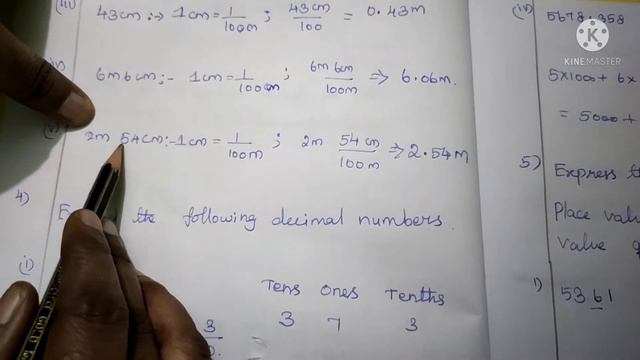 (iii) 43cm :→ 1cm = 1/100m ; 43cm/100 = 0.43m
6m6cm :- 1cm = 1/100m ; 6m 6cm/100m ⇒ 6.06m.
(v) 2m 54cm :- 1cm = 1/100m ; 2m 54cm/100m ⇒ 2.54m
4) the following decimal numbers.
(i)
Tens Ones Tenths
3 7 3
3
(iv) 5678.358
5x1000+ 6x
= 5000+
5) Express
Place
value
1) 5361
KINEMASTER